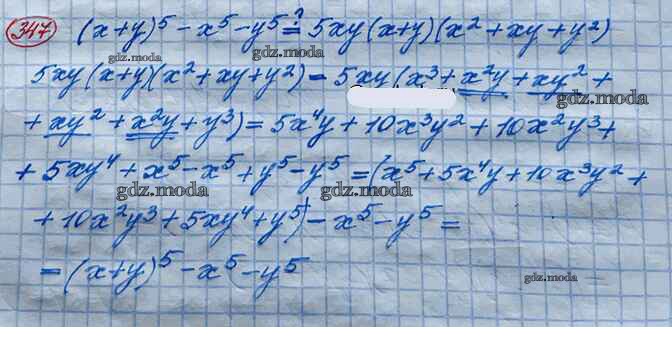 347 (x+y)⁵ - x⁵ - y⁵ ≟ 5xy(x+y)(x² + xy + y²)
gdz.moda gdz.moda
5xy(x+y)(x² + xy + y²) = 5xy(x³ + x²y + xy² +
gdz.moda
+ xy² + x²y + y³) = 5x⁴y + 10x³y² + 10x²y³ +
+ 5xy⁴ + x⁵ - x⁵ + y⁵ - y⁵ = (x⁵ + 5x⁴y + 10x³y² +
gdz.moda gdz.moda
+ 10x²y³ + 5xy⁴ + y⁵) - x⁵ - y⁵ =
= (x+y)⁵ - x⁵ - y⁵
gdz.moda